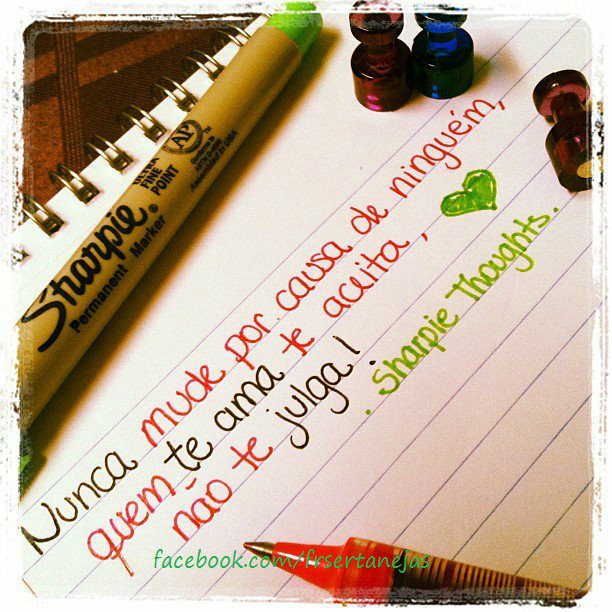 Sharpie®
Permanent Marker
ULTRA
FINE
POINT
AP
Nunca mude por causa de ninguém,
quem te ama te aceita,
não te julga!
. Sharpie Thoughts.
facebook.com/frsertanejas